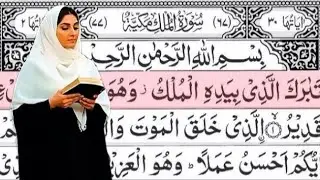 اٰیَاتُهَا ٣٠ (٦٧) سُوْرَةُ الْمُلْكِ مَكِّیَّةٌ (٧٧) ٢
بِسْمِ اللّٰهِ الرَّحْمٰنِ الرَّحِ
تَبٰرَكَ الَّذِیْ بِیَدِهِ الْمُلْكُ ز وَهُوَ
قَدِیْرُ ۙ ١ الَّذِیْ خَلَقَ الْمَوْتَ وَالْ
یُّكُمْ اَحْسَنُ عَمَلًا ؕ وَهُوَ الْعَزِیْ